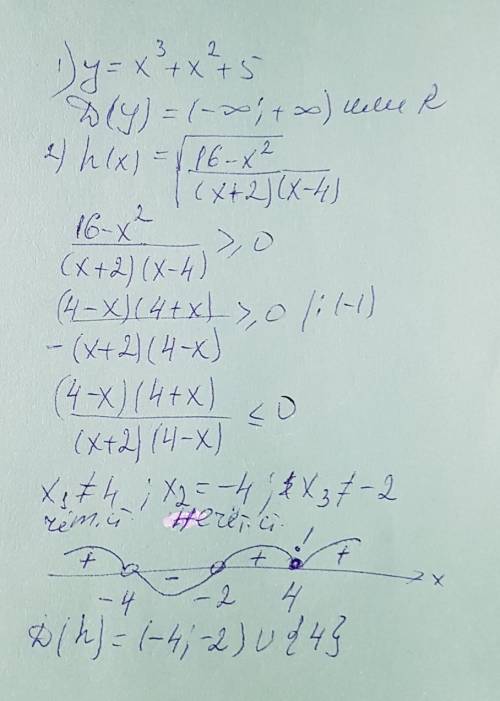 1) y = x³ + x² + 5
D(y) = (-∞; +∞) или R
2) h(x) = √((16-x²)/((x+2)(x-4)))
(16-x²)/((x+2)(x-4)) ≥ 0
(4-x)(4+x)/(-(x+2)(4-x)) ≥ 0 /:(-1)
(4-x)(4+x)/((x+2)(4-x)) ≤ 0
x₁ ≠ 4 ; x₂ = -4 ; x₃ ≠ -2
чётн.ст. нечётн.ст.
+ - + ! + x
-4 -2 4
D(h) = (-4; -2) ∪ {4}